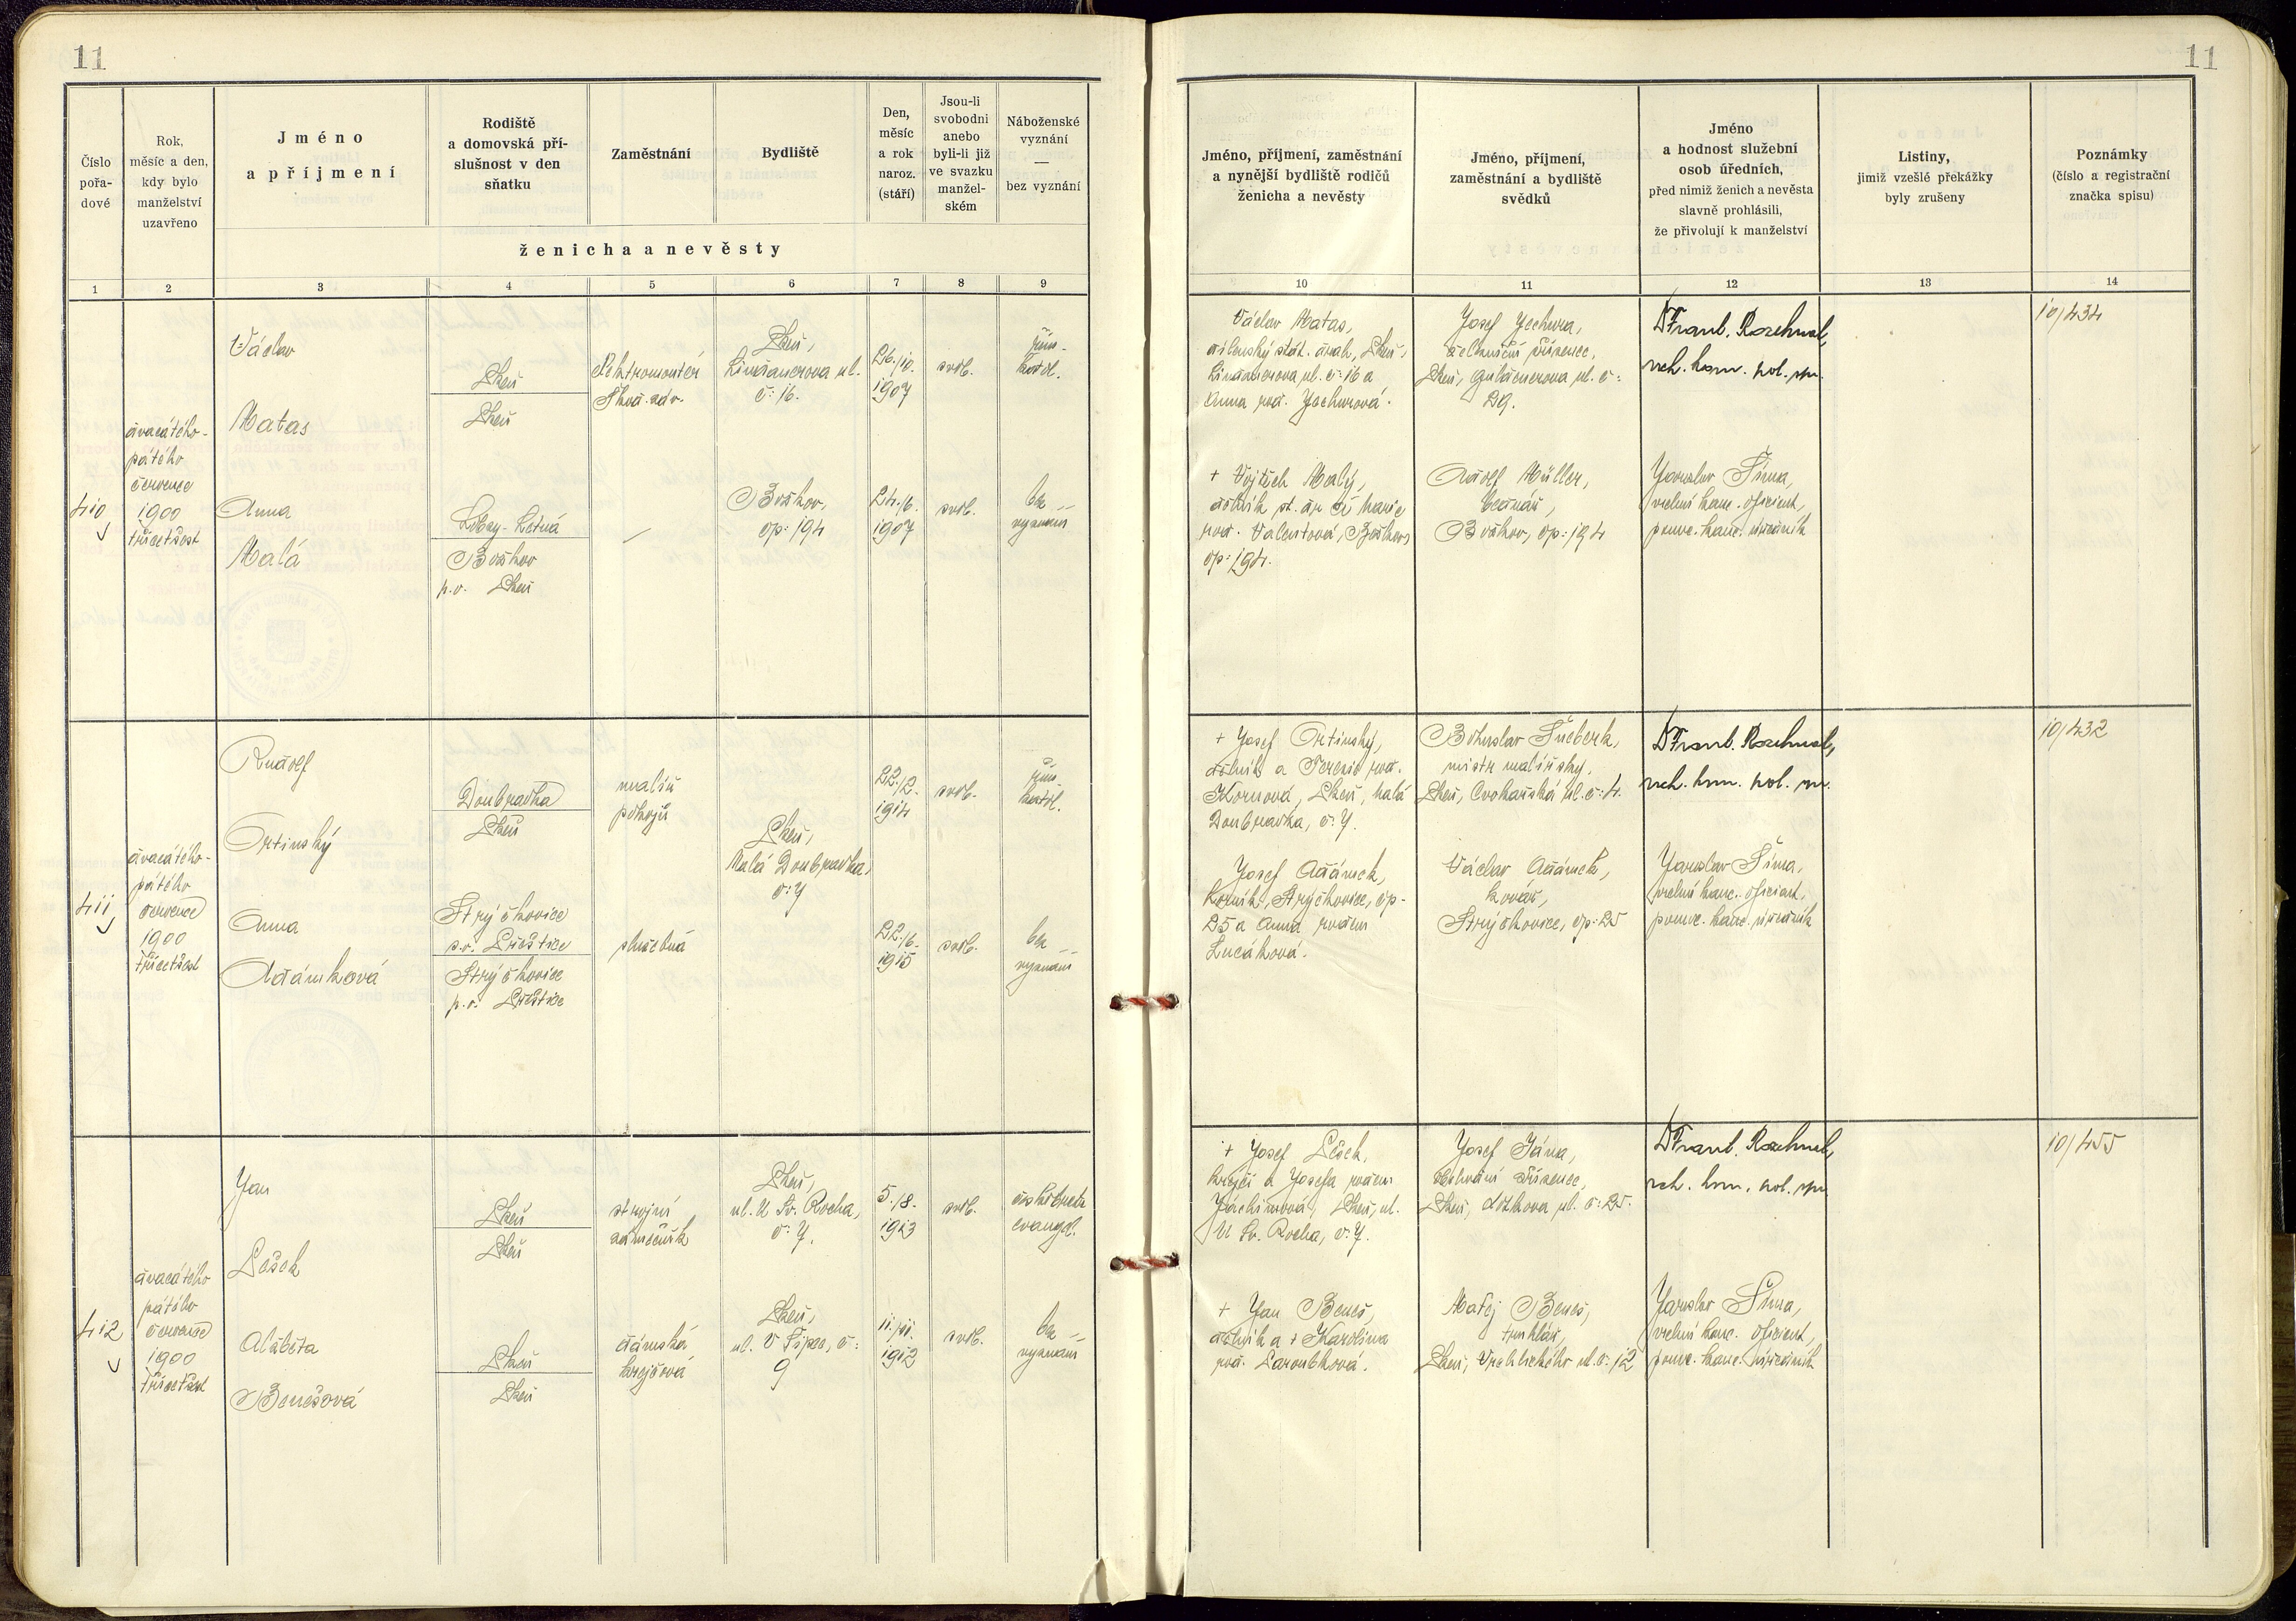 11
11
Číslo
pořa-
dové
Rok,
měsíc a den,
kdy bylo
manželství
uzavřeno
Jméno
a příjmení
Rodiště
a domovská pří-
slušnost v den
sňatku
Zaměstnání
Bydliště
Den,
měsíc
a rok
naroz.
(stáří)
Jsou-li
svobodni
anebo
byli-li již
ve svazku
manžel-
ském
Náboženské
vyznání
—
bez vyznání
ženicha a nevěsty
1 2 3 4 5 6 7 8 9
Jméno, příjmení, zaměstnání
a nynější bydliště rodičů
ženicha a nevěsty
Jméno, příjmení,
zaměstnání a bydliště
svědků
Jméno
a hodnost služební
osob úředních,
před nimiž ženich a nevěsta
slavně prohlásili,
že přivolují k manželství
Listiny,
jimiž vzešlé překážky
byly zrušeny
Poznámky
(číslo a registrační
značka spisu)
10 11 12 13 14
410
dvacátého-
pátého
července
1900
třicetšest
Václav
Matas
Anna
Malá
Plzeň
Plzeň
Lobzy-Letná
Božkov
p.o. Plzeň
elektromontér
Škod. záv.
—
Plzeň,
Lindauerova ul.
č: 16.
Božkov,
čp: 194
26./10.
1907
24./6.
1907
svob.
svob.
řím.-
katol.
bez
vyznání
Václav Matas,
Lindauerova ul. č: 16 a
Anna roz. Jechurová.
+ Vojtěch Malý,
dělník st. dr. a Marie
roz. Valentová, Božkov,
čp: 194.
Josef Jechura,
železniční zřízenec,
Plzeň, Guldenerova ul. č:
29.
Adolf Müller,
Božkov, čp: 194
Dr Frant. Rozhoval,
vrch. kom. pol. spr.
Jaroslav Šíma,
vrchní kanc. oficiant,
pomoc. kanc. úředník
10/434
411
dvacátého-
pátého
července
1900
třicetšest
Rudolf
Ortinský
Anna
Adámková
Doubravka
Plzeň
Strýčkovice
p.o. Přeštice
Strýčkovice
p.o. Přeštice
malíř
pokojů
služebná
Plzeň,
Malá Doubravka,
č: 7
22./2.
1914
22./6.
1915
svob.
svob.
řím.
katol.
bez
vyznání
+ Josef Ortinský,
dělník a Terezie roz.
Kornová, Plzeň, Malá
Doubravka, č: 7.
Josef Adámek,
Strýčkovice, čp-
25 a Anna rozen
Lucáková.
Bohuslav Šneberk,
mistr malířský,
Plzeň, Cvokařská ul. č: 4.
Václav Adámek,
kovář,
Strýčkovice, čp: 25
Dr Frant. Rozhoval,
vrch. kom. pol. spr.
Jaroslav Šíma,
vrchní kanc. oficiant,
pomoc. kanc. úředník
10/432
412
dvacátého
pátého
července
1900
třicetšest
Jan
Lešek
Alžběta
Benešová
Plzeň
Plzeň
Plzeň
Plzeň
strojní
zámečník
dámská
krejčová
Plzeň,
ul. U Sv. Rocha,
č: 7.
Plzeň,
ul. V Šipce, č:
9
5./8.
1913
11./11.
1912
svob.
svob.
českobratr.
evangel.
bez
vyznání
+ Josef Lešek,
krejčí a Josefa rozen.
Jáchimová, Plzeň, ul.
U Sv. Rocha, č: 7.
+ Jan Beneš,
dělník a + Karolina
roz. Laroubková.
Josef Jána,
zřízenec,
Matěj Beneš,
truhlář,
Plzeň, Vrchlického ul. č: 12
Dr Frant. Rozhoval,
vrch. kom. pol. spr.
Jaroslav Šíma,
vrchní kanc. oficiant,
pomoc. kanc. úředník
10/455